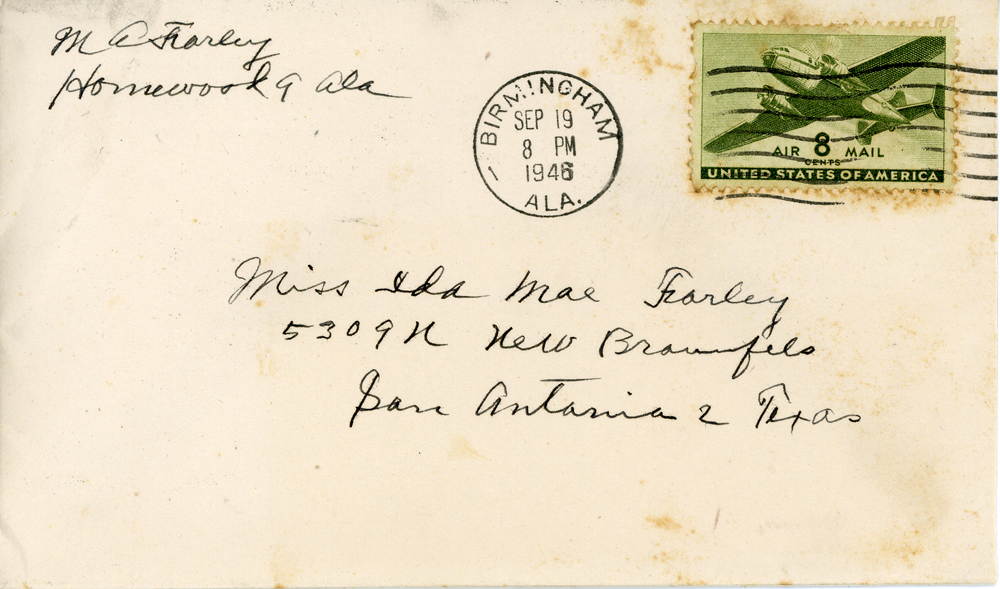 M A Farley
Homewood 9 Ala
BIRMINGHAM
SEP 19
8 PM
1946
ALA.
AIR 8 MAIL
CENTS
UNITED STATES OF AMERICA
Miss Ida Mae Farley
5309 N New Braunfels
San Antonio 2 Texas